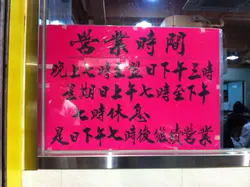 營業時間
晚上七時至翌日下午三時
星期日上午七時至下午
七時休息
是日下午七時後繼續營業